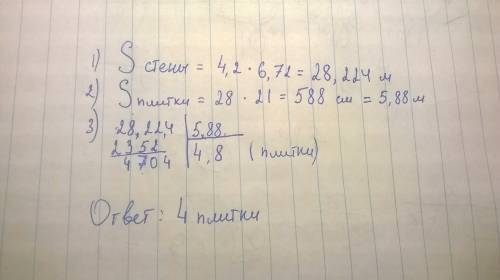 1) S стены = 4,2 · 6,72 = 28,224 м
2) S плитки = 28 · 21 = 588 см = 5,88 м
3) 28,22,4 | 5,88,
2352 | 4,8 (плитки)
4704
Ответ: 4 плитки